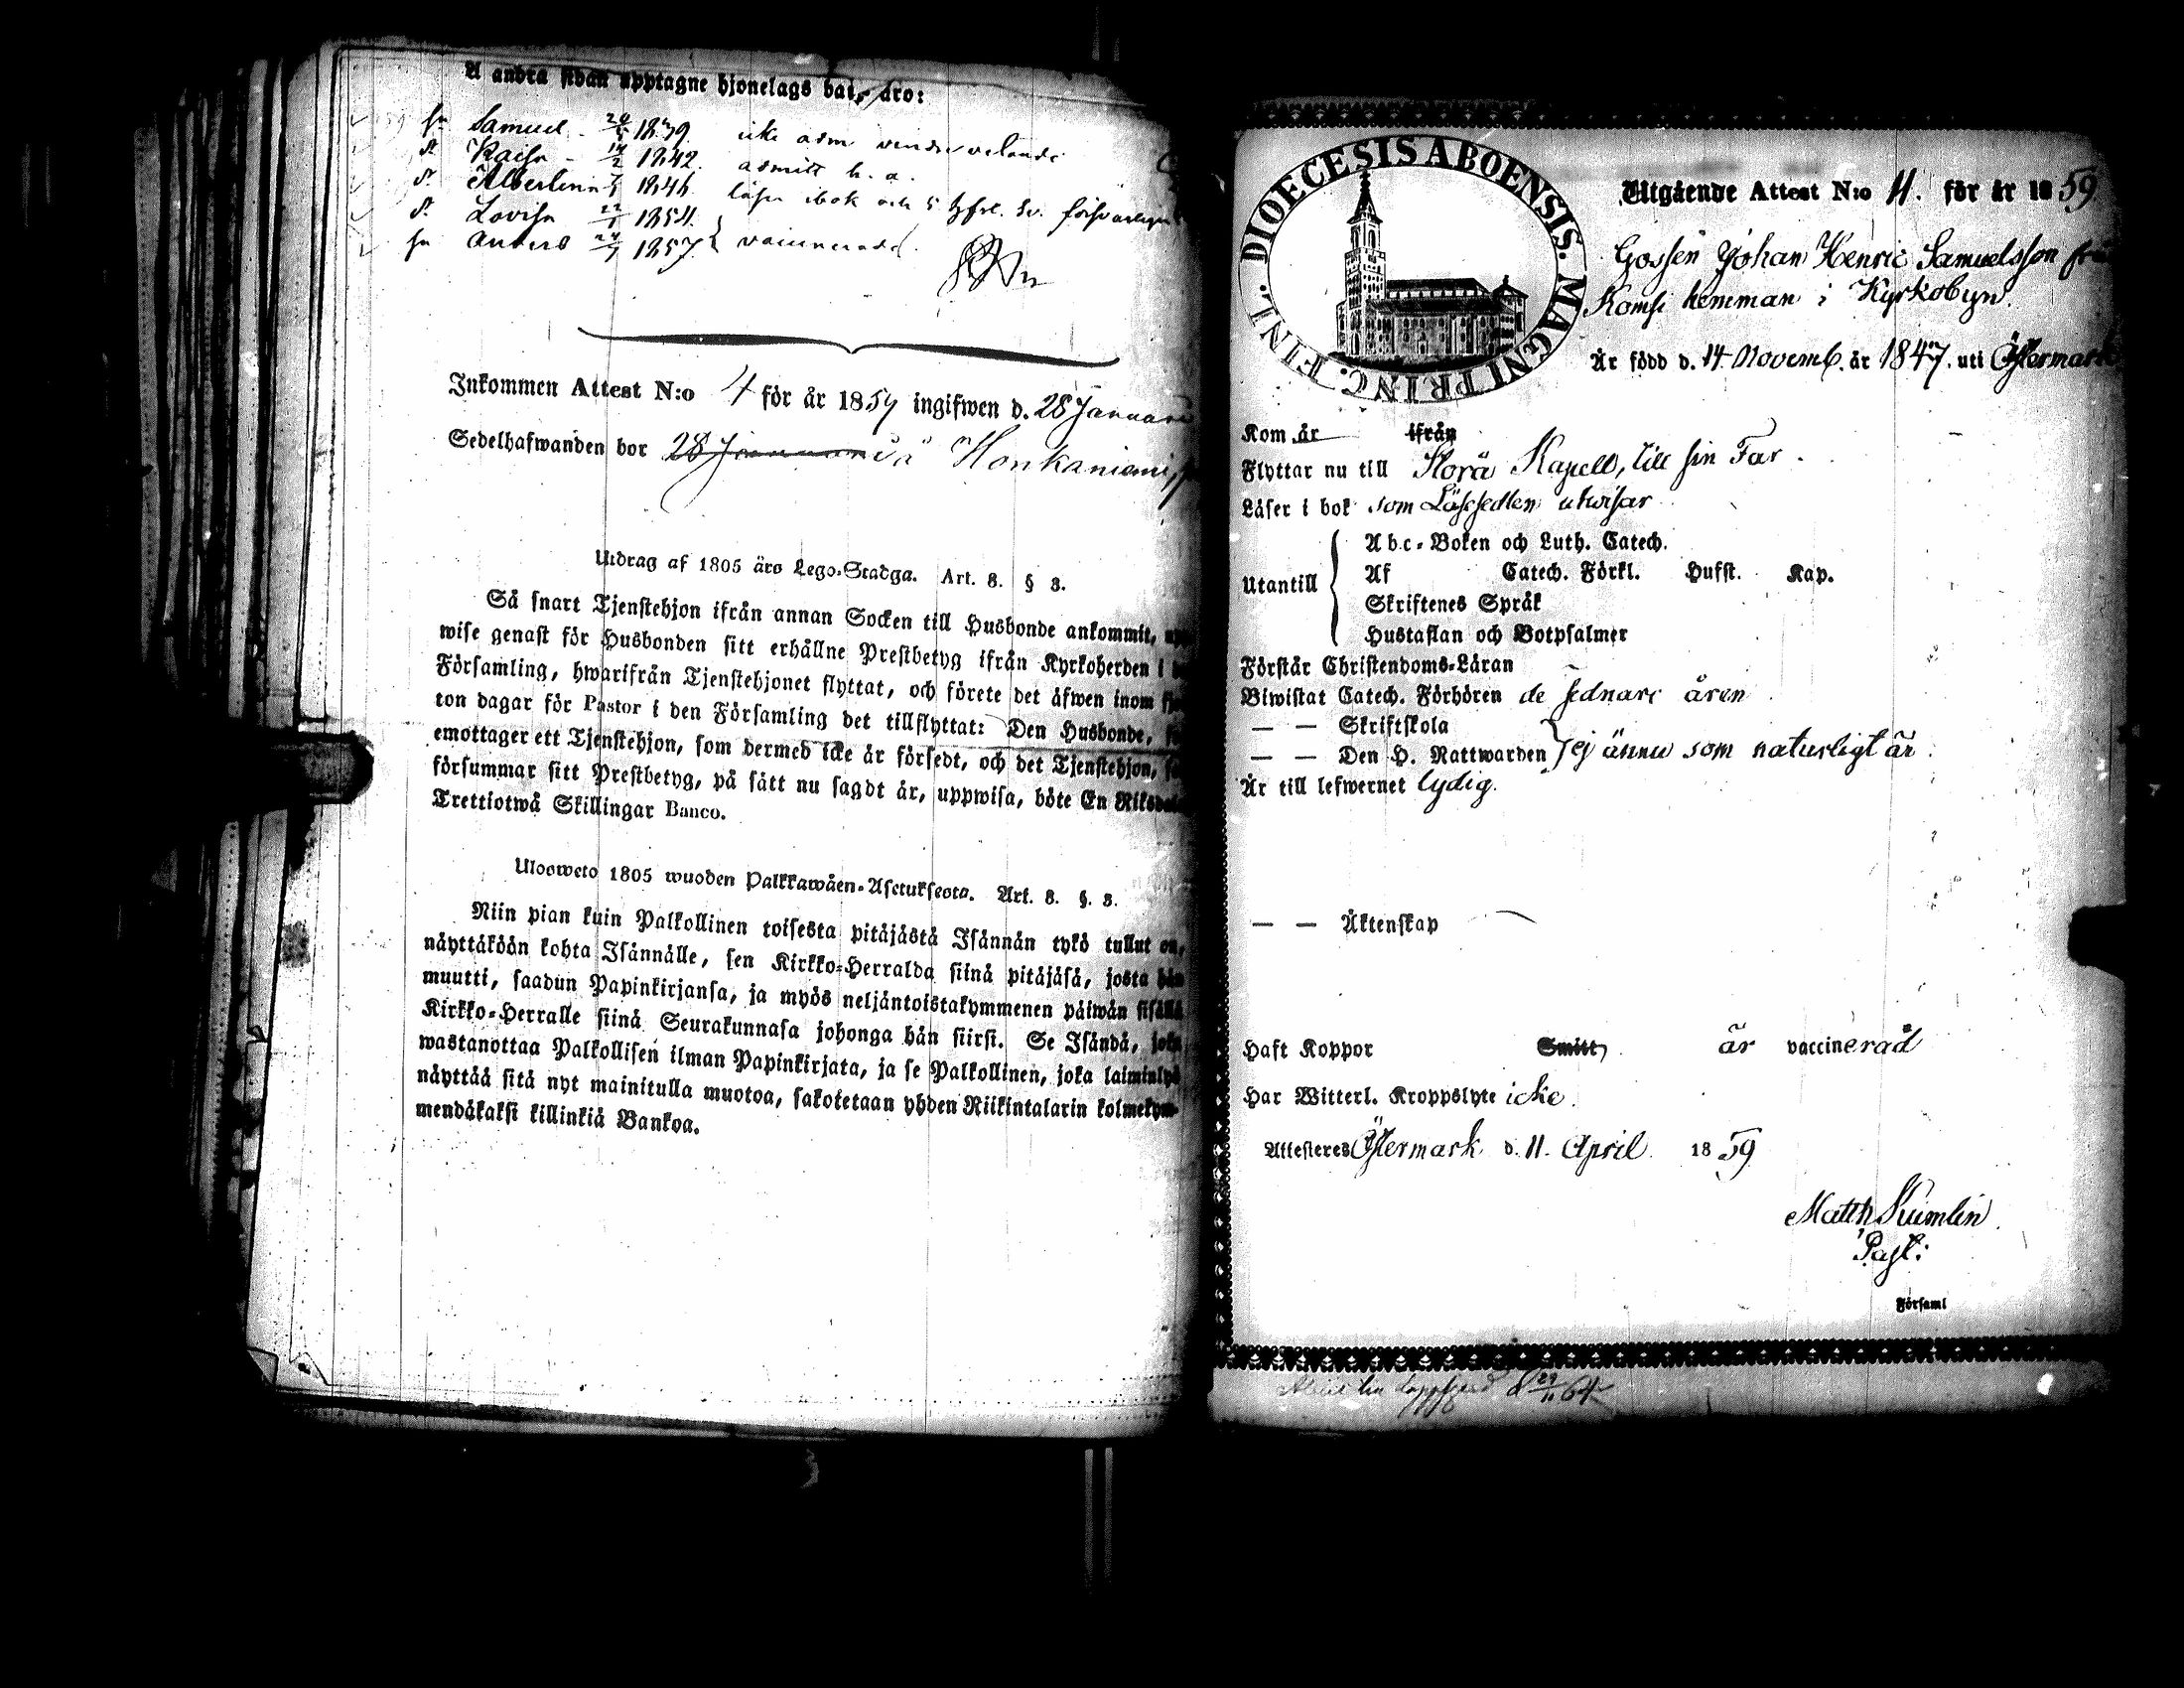 Å andra sidan upptagne hjonelags barn äro:
sn Samuel - 24/5 1839. icke adm
dr Kaisa - 14/2 1842. admitt h. a.
dr Albertina 1846. läser i bok och 5
dr Lovisa 22/1 1854.
sn Anders 24/7 1857. } vaccinerade.
Inkommen Attest N:o 4 för år 1859 ingifwen d. 28 Januari
Sedelhafwanden bor 28 Januari å Honkaniemi
Utdrag af 1805 års Lego-Stadga. Art. 8. § 3.
Så snart Tjenstehjon ifrån annan Socken till Husbonde ankommit,
wise genast för Husbonden sitt erhållne Prestbetyg ifrån Kyrkoherden i
Församling, hwarifrån Tjenstehjonet flyttat, och förete det äfwen inom
ton dagar för Pastor i den Församling det tillflyttat: Den Husbonde,
emottager ett Tjenstehjon, som dermed icke är försedt, och det Tjenstehjon,
försummar sitt Prestbetyg, på sätt nu sagdt är, uppwisa, böte En
Trettiotwå Skillingar Banco.
Ulosweto 1805 wuoden Palkkawäen-Asetuksesta. Art. 8. §. 3.
Niin pian kuin Palkollinen toisesta pitäjästä Isännän tykö tullut on,
näyttäköön kohta Isännälle, sen Kirkko-Herralda siinä pitäjäsä, josta hän
muutti, saadun Papinkirjansa, ja myös neljäntoistakymmenen päiwän sisällä
Kirkko-Herralle siinä Seurakunnasa johonga hän siirsi. Se Isändä, joka
wastanottaa Palkollisen ilman Papinkirjata, ja se Palkollinen, joka laiminlyö
näyttää sitä nyt mainitulla muotoa, sakotetaan yhden Riikintalarin kolmekym-
mendäkaksi killinkiä Bankoa.
DIOECESIS ABOENSIS. MAGNI PRINC. FINL.
Utgående Attest N:o 11. för år 1859
Gossen Johan Henric Samuelsson från
Komsi hemman i Kyrkobyn.
Är född d. 14 Novemb. år 1847. uti Östermark
Kom år ifrån
Flyttar nu till Storå Kapell, till sin Far.
Läser i bok som Läsesedlen utwisar
Utantill { Abc-Boken och Luth. Catech.
Af Catech. Förkl. Husst. Kap.
Skriftenes Språk
Hustaflan och Botpsalmer
Förstår Christendoms-Läran
Biwistat Catech. Förhören de sednare åren
— — Skriftskola
— — Den H. Nattwarden } ej ännu som naturligt är
Är till lefwernet lydig.
— — Äktenskap
Haft Koppor Smitt är vaccinerad
Har Witterl. Kroppslyte icke.
Attesteres Östermark d. 11. April 1859
Matth Kumlin.
Past:
Församl
29/11 64